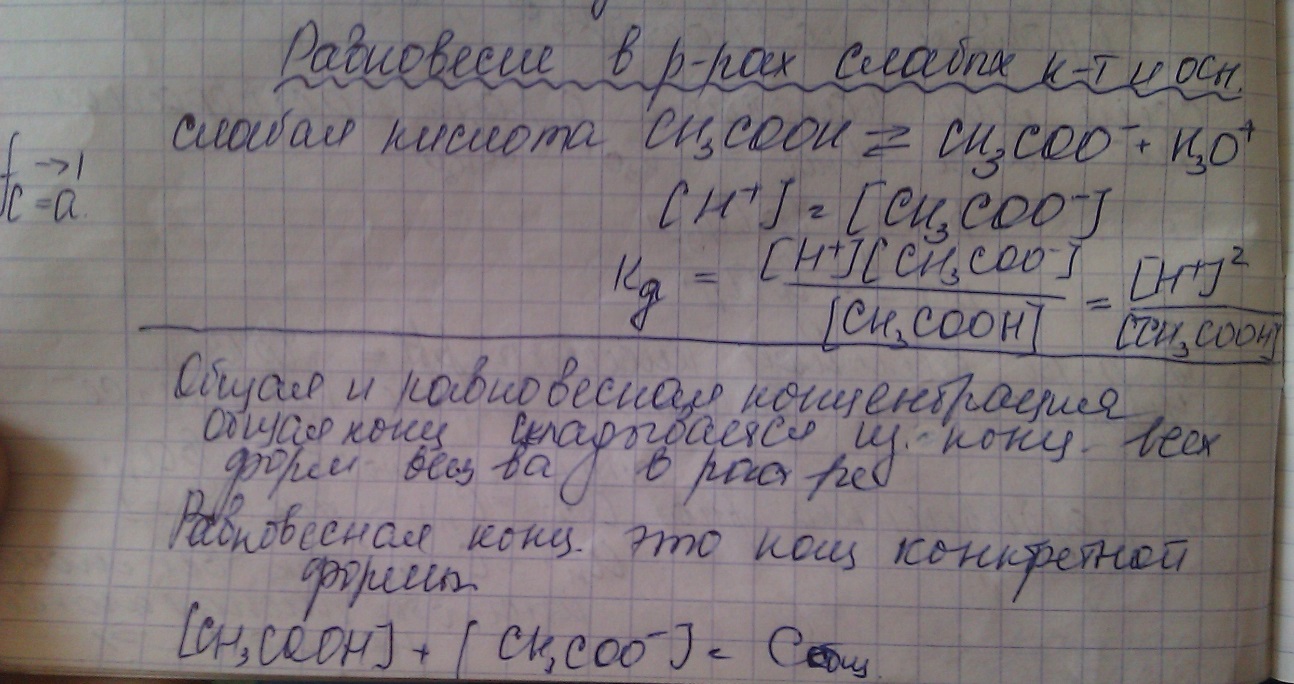 Равновесие в р-рах слабых к-т и осн.
слабая кислота CH₃COOH ⇄ CH₃COO⁻ + H₃O⁺
f → 1
c = a.
[H⁺] = [CH₃COO⁻]
Kд = [H⁺][CH₃COO⁻] / [CH₃COOH] = [H⁺]² / [CH₃COOH]
Общая и равновесная концентрация
Общая конц складывается из конц. всех
форм вещ ва в раст ре
Равновесная конц. это конц конкретной
формы
[CH₃COOH] + [CH₃COO⁻] = Cобщ